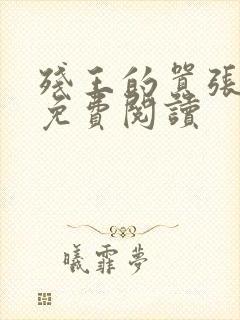 殘王的囂張
免費閱讀
曦霏夢